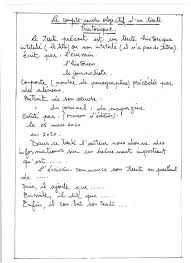 Le compte-rendu objectif d'un texte
historique.
Le texte présent est un texte historique
intitulé (le titre) ou non intitulé (s'il n'a pas de titre)
écrit par : l'écrivain
l'historien
le journaliste
Comporte (nombre de paragraphes) précédés par
des alinéas.
Extrait de son œuvre :
du journal, du magazine.
Edité par : (maison d'édition).
le 06 mars 2020
en 2020.
Dans ce texte l'auteur nous donne des
informations sur un événement important
qu'est .....
L'écrivain commence son texte en parlant
de .....
Puis, il ajoute que .....
Ensuite, il dit que .....
Enfin, il conclut son texte .....